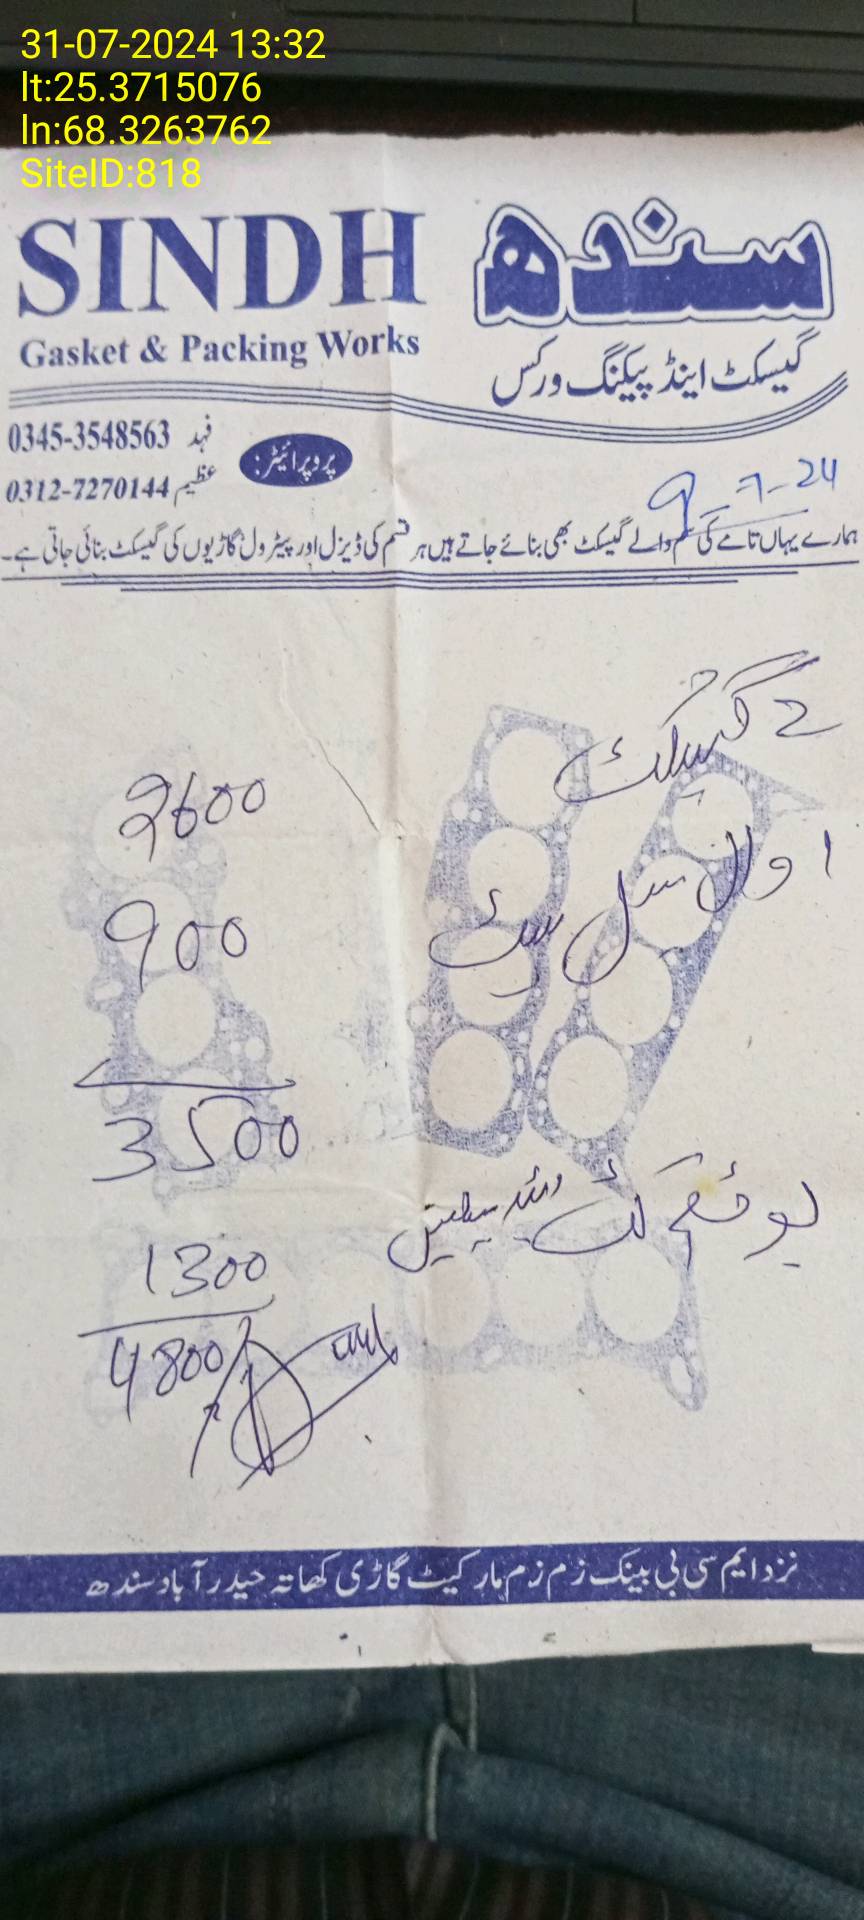 31-07-2024 13:32
lt:25.3715076
ln:68.3263762
SiteID:818
SINDH سندھ
Gasket & Packing Works گیسکٹ اینڈ پیکنگ ورکس
0345-3548563 فہد
پروپرائیٹر:
0312-7270144 عظیم
9-7-24
ہمارے یہاں تامے کی والے گیسکٹ بھی بنائے جاتے ہیں ہر قسم کی ڈیزل اور پیٹرول گاڑیوں کی گیسکٹ بنائی جاتی ہے۔
2 گیسکٹ
2600
1 وال سیل سیٹ
900
3500
1300
4800/
نزد ایم سی بی بینک زم زم مارکیٹ گاڑی کھاتہ حیدرآباد سندھ